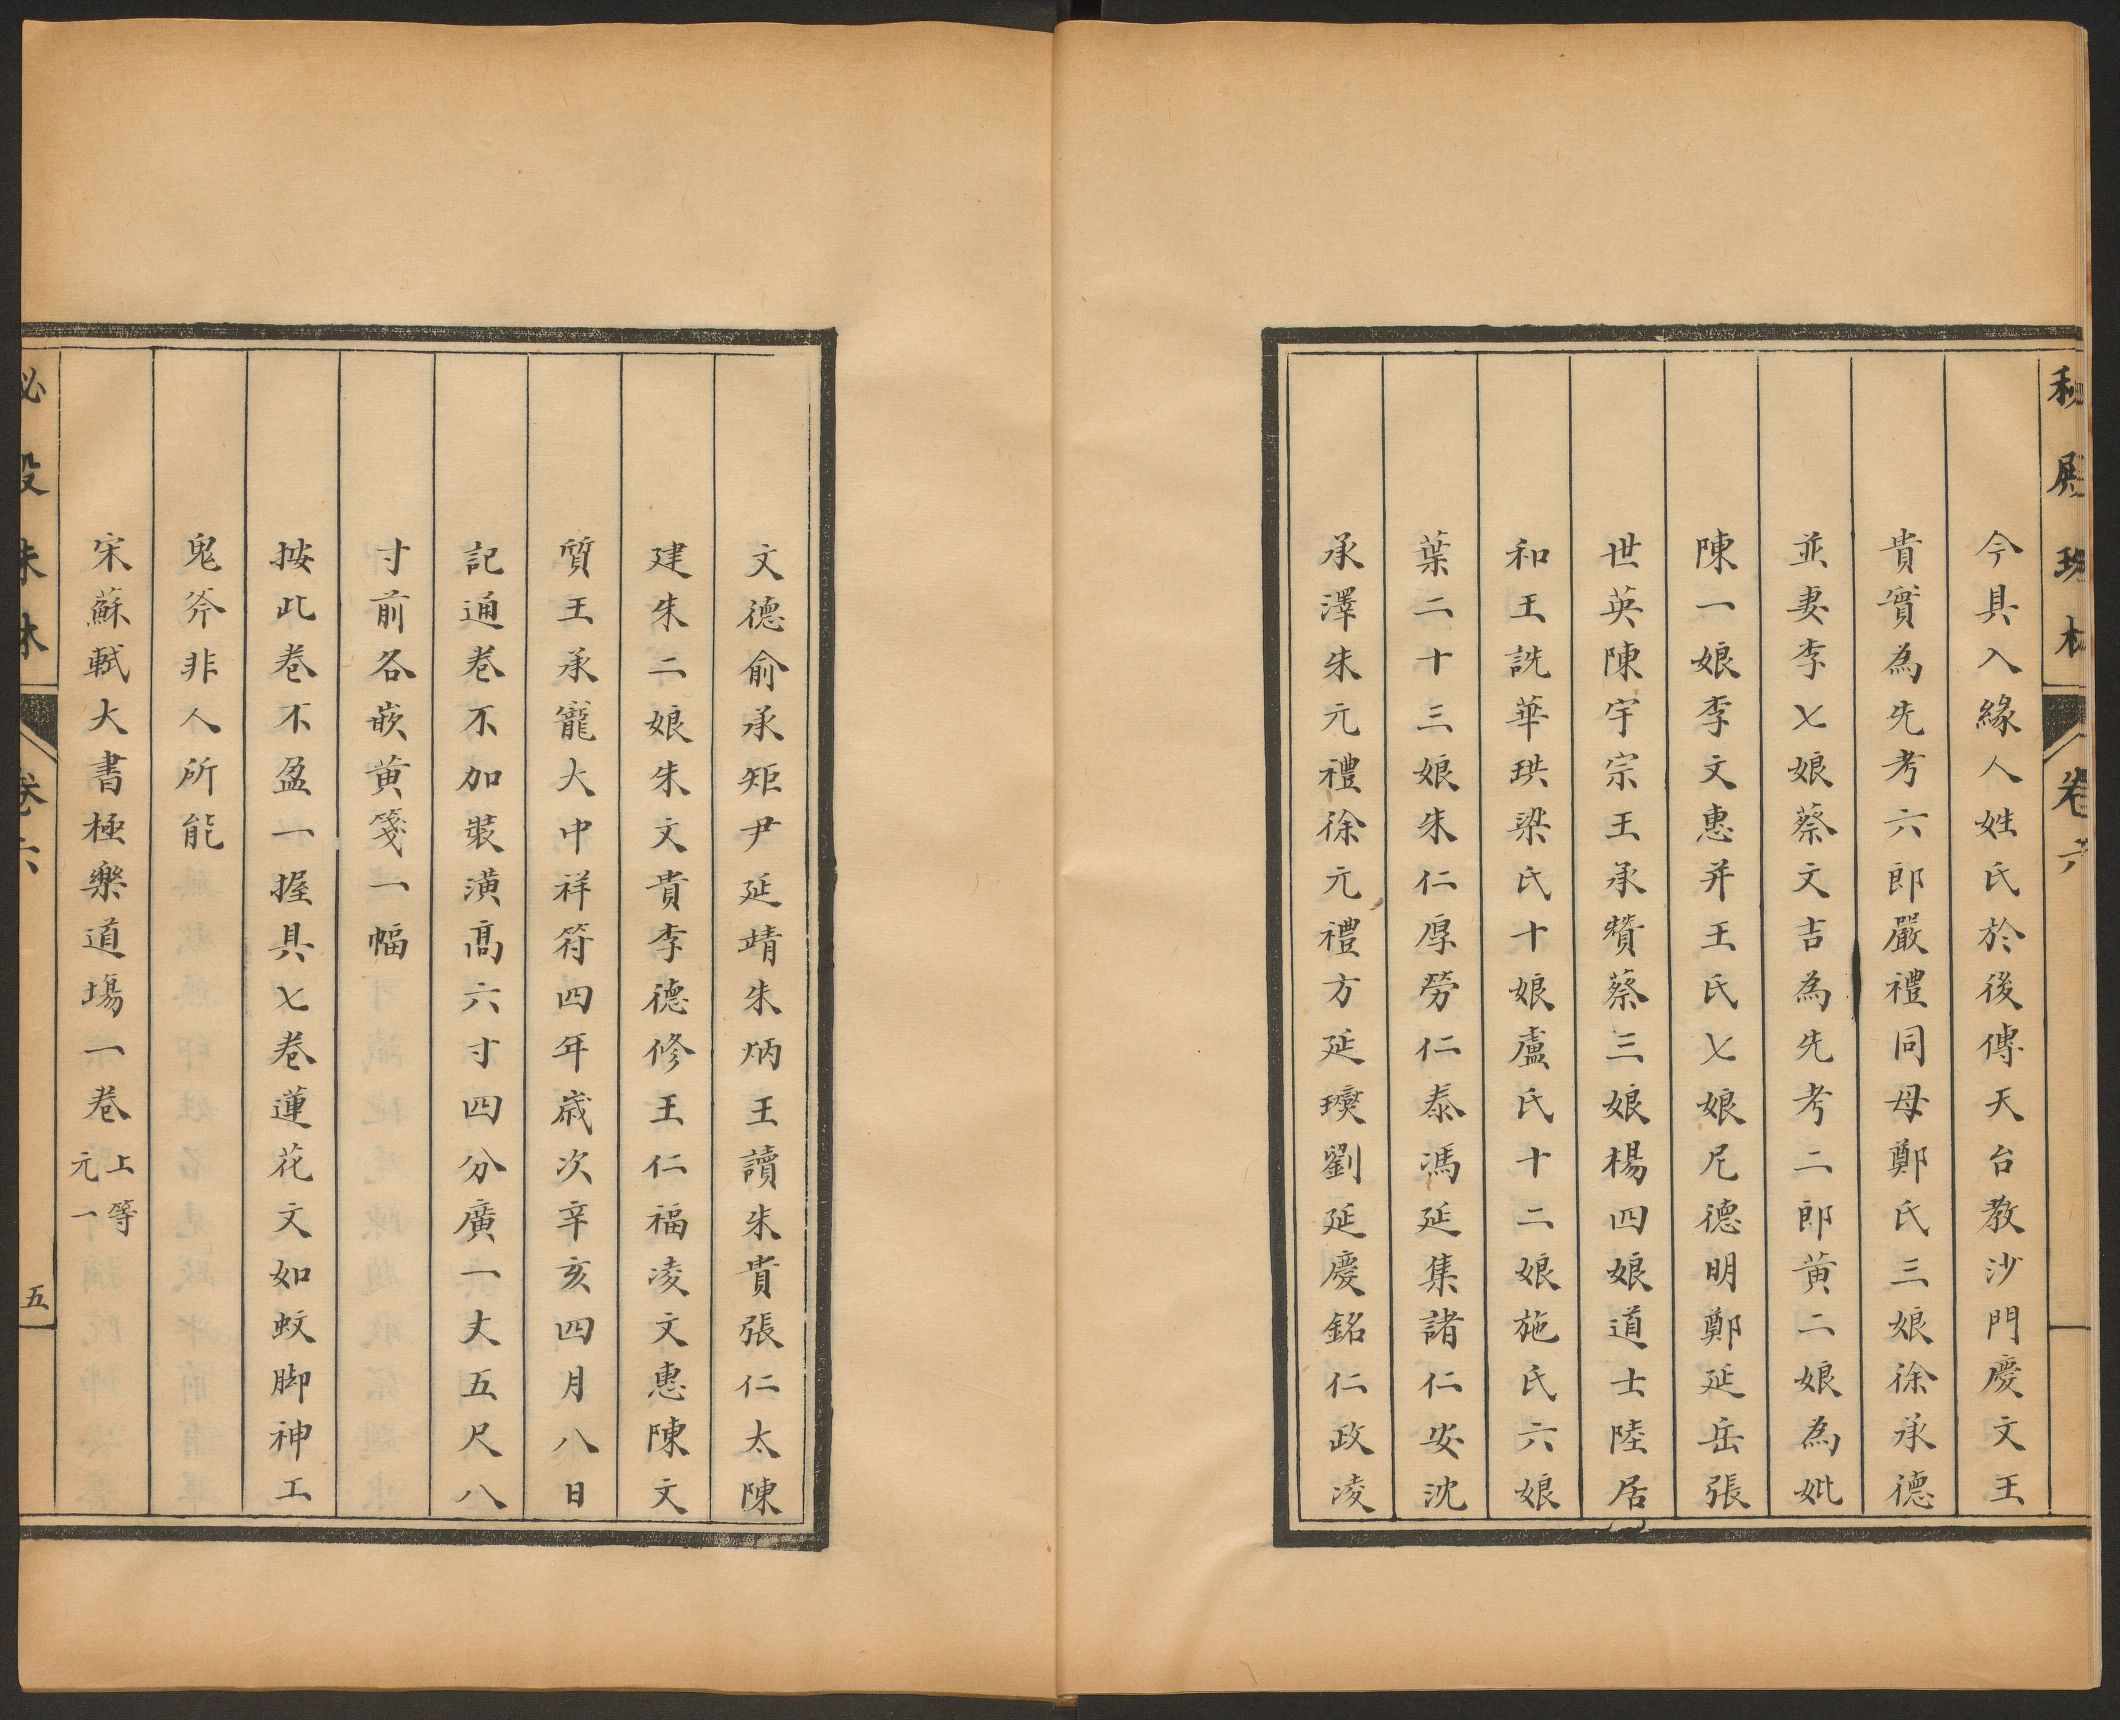 秘殿珠林 卷六
今具入緣人姓氏於後傳天台教沙門慶文王
貴實為先考六郎嚴禮同母鄭氏三娘徐承德
並妻李七娘蔡文吉為先考二郎黃二娘為妣
陳一娘李文惠并王氏七娘尼德明鄭延岳張
世英陳宇宗王承贊蔡三娘楊四娘道士陸居
和王詵華珙梁氏十娘盧氏十二娘施氏六娘
葉二十三娘朱仁厚勞仁泰馮延集諸仁安沈
承澤朱元禮徐元禮方延瑛劉延慶銘仁政凌
文德俞承矩尹延靖朱炳王讀朱貴張仁太陳
建朱二娘朱文貴李德修王仁福凌文惠陳文
質王承寵大中祥符四年歲次辛亥四月八日
記通卷不加裝潢高六寸四分廣一丈五尺八
寸前各嵌黃箋一幅
按此卷不盈一握具七卷蓮花文如蚊脚神工
鬼斧非人所能
宋蘇軾大書極樂道場一卷 上等 元一
秘殿珠林 卷六 五